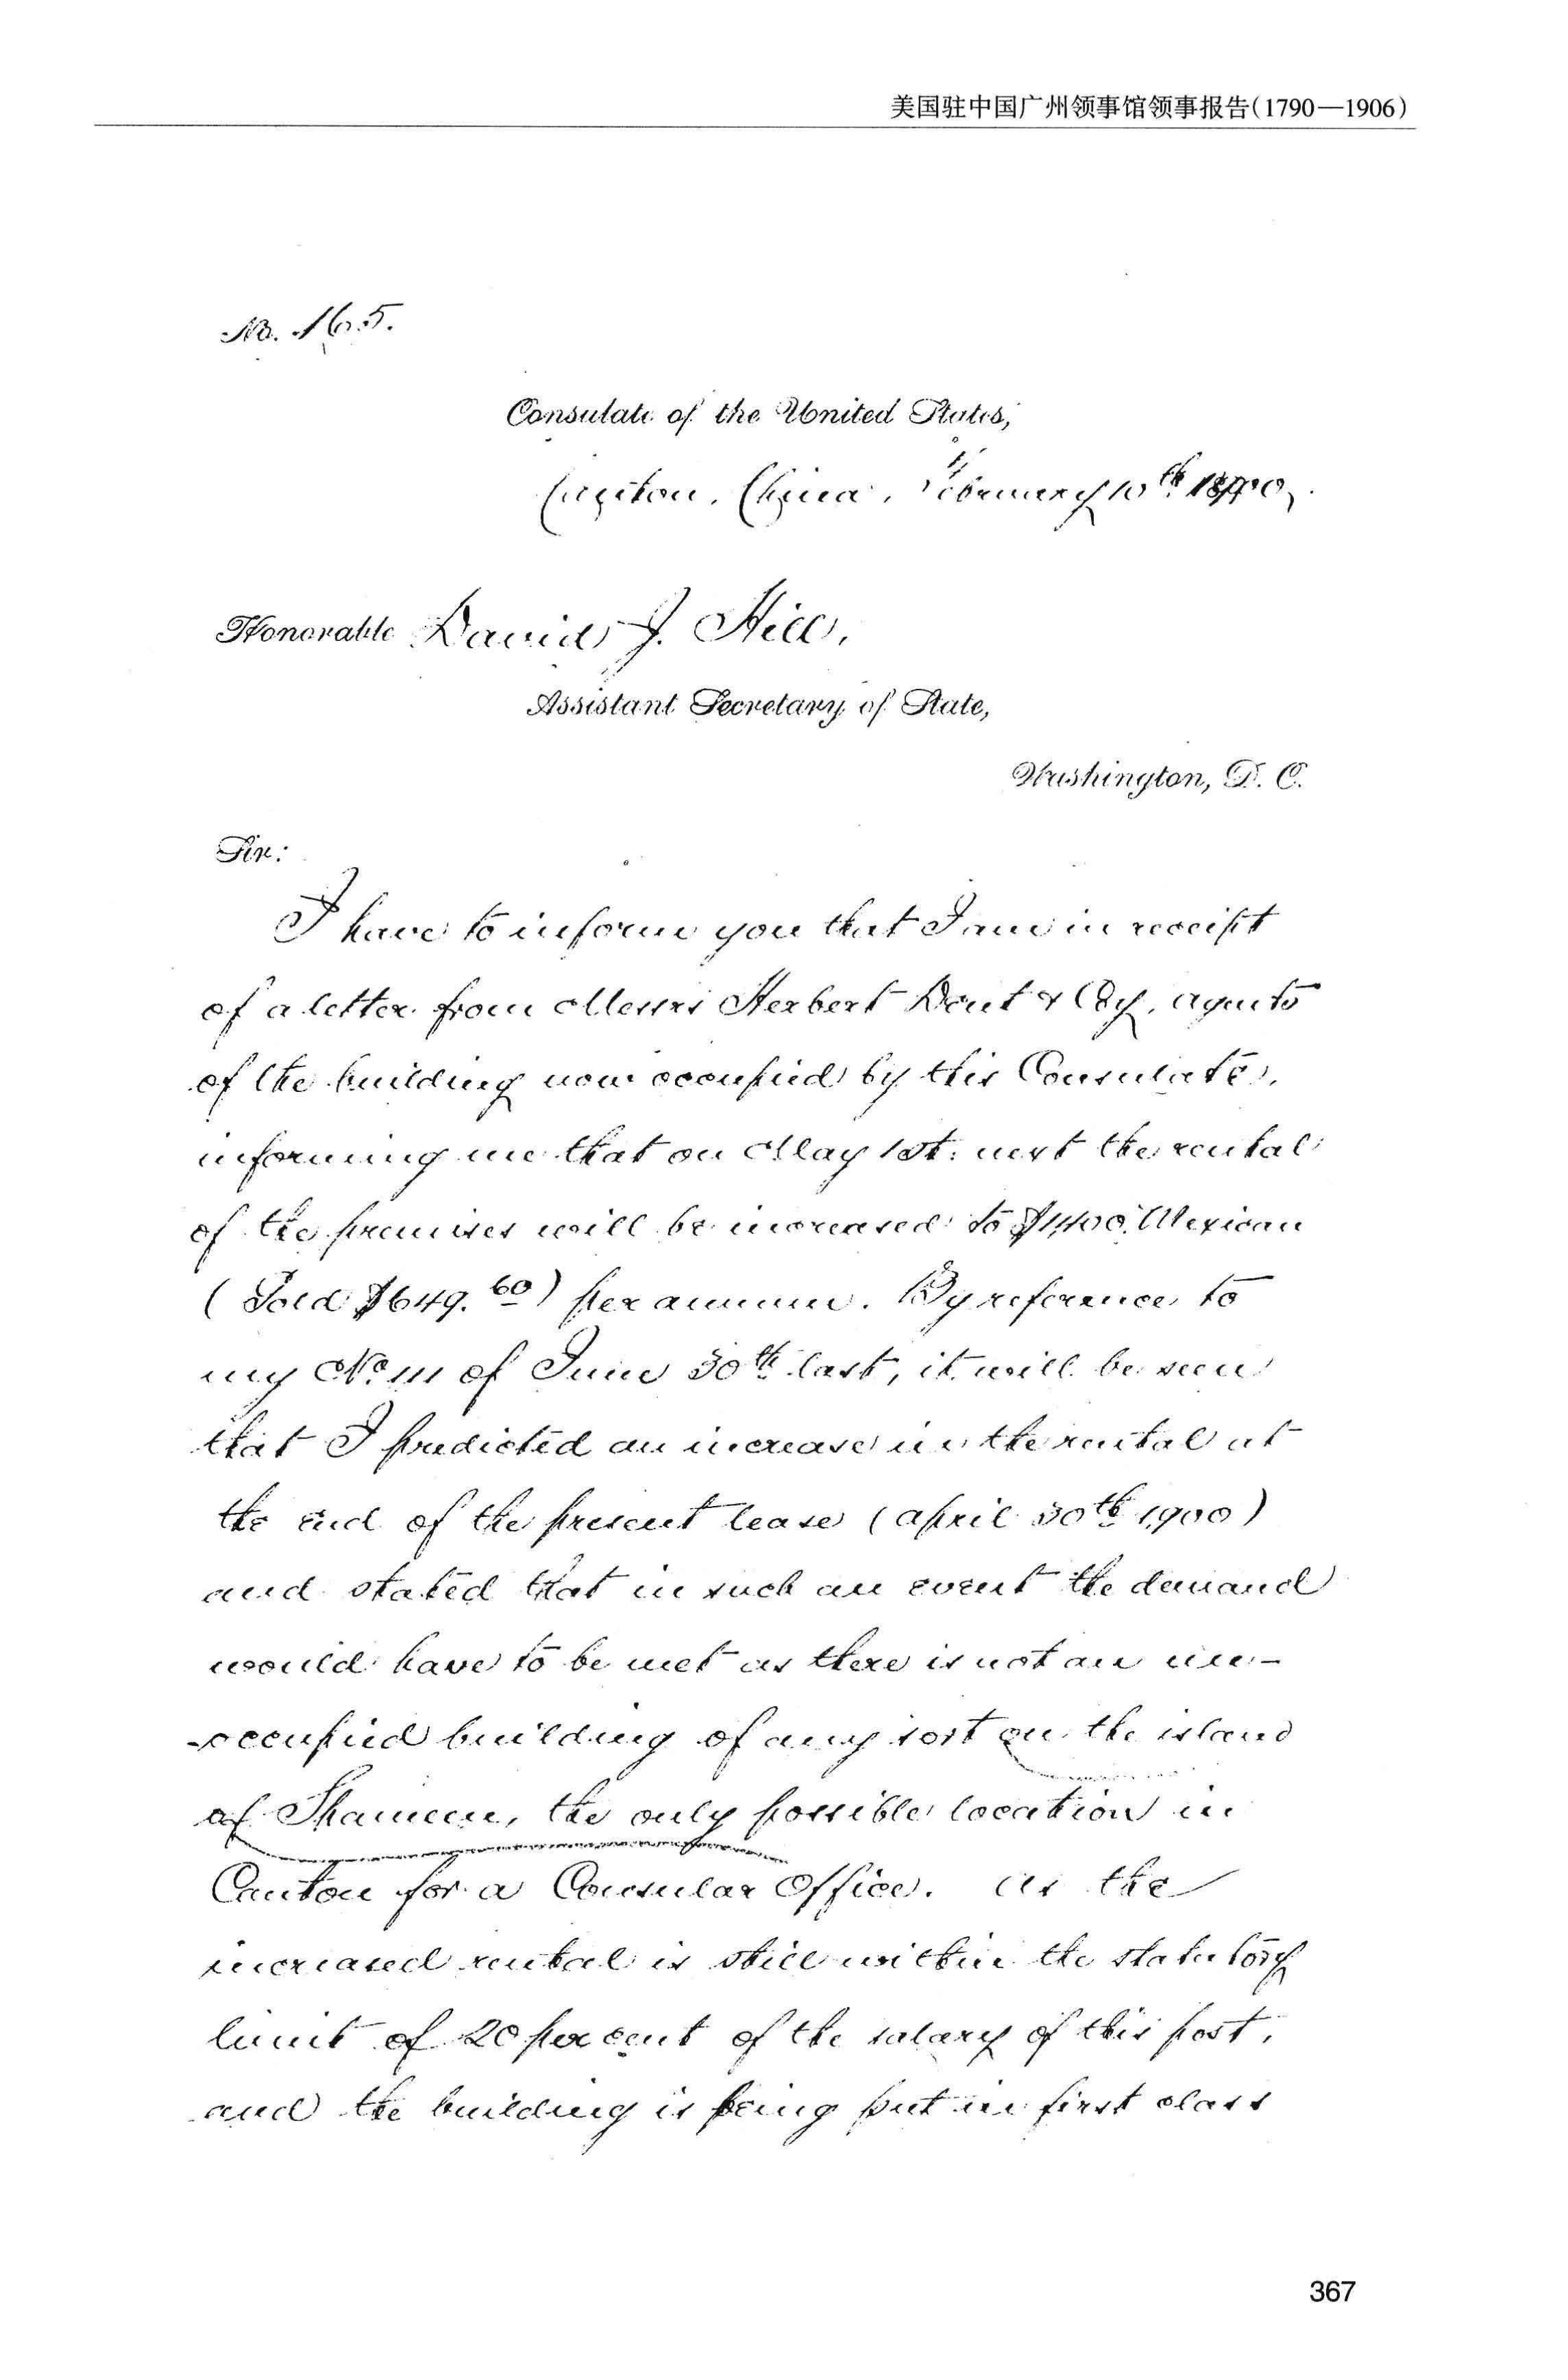 美国驻中国广州领事馆领事报告(1790—1906)
No. 165.
Consulate of the United States,
Canton, China, February 10th 1900.
Honorable David J. Hill,
Assistant Secretary of State,
Washington, D. C.
Sir:
I have to inform you that I am in receipt
of a letter from Messrs Herbert Dent & Coy, agents
of the building now occupied by this Consulate,
informing me that on May 1st. next the rental
of the premises will be increased to $1,400. Mexican
(Gold $649.60) per annum. By reference to
my No. 111 of June 30th last, it will be seen
that I predicted an increase in the rental at
the end of the present lease (April 30th 1900)
and stated that in such an event the demand
would have to be met as there is not an un-
-occupied building of any sort on the island
of Shameen, the only possible location in
Canton for a Consular Office. As the
increased rental is still within the statutory
limit of 20 per cent of the salary of this post,
and the building is being put in first class
367